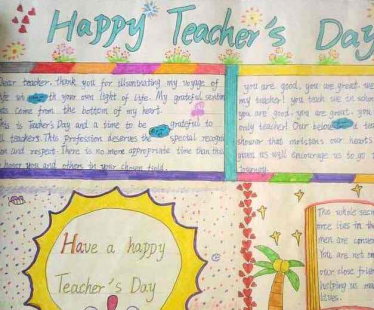 Happy Teacher's Day
Dear teacher, thank you for illuminating my voyage of
life with your own light of life. My grateful
come from the bottom of my heart
This is Teacher's Day and a time to be grateful to
all teachers. This profession deserves the special
and respect. There is no more appropriate time than this
honor you and others in your chosen field.
you are good, you are great,
my teacher! you teach us in
you are good, you are great, you
only teacher! Our
shower that moistens our hearts
given us will encourage us to go
Have a happy
Teacher's Day
The whole
ties in the
men are
You are not
our close
helping us